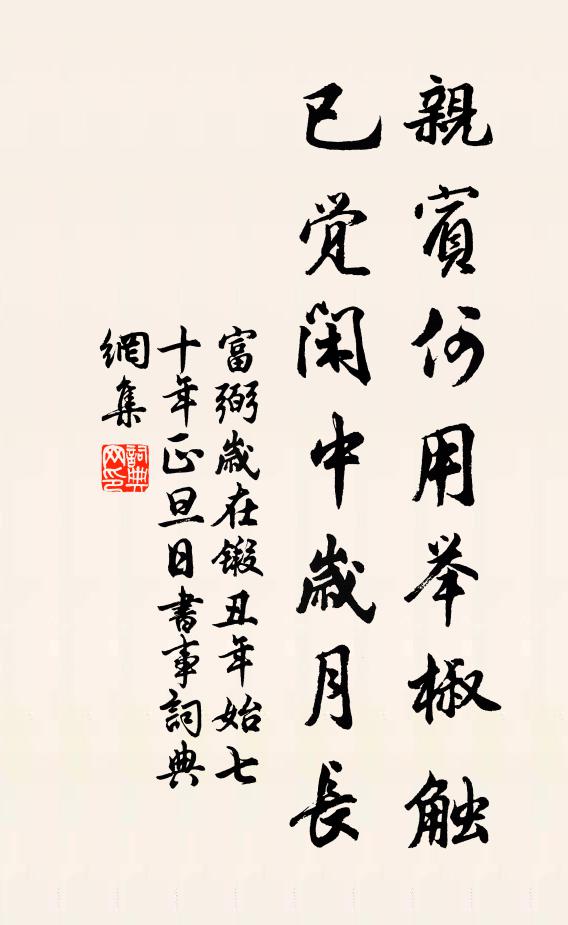 親賓何用举椒触
已覚閑中歳月長
富弼歳在鍛丑年始七
十年正旦日書事詞典
網集
詞典
网印